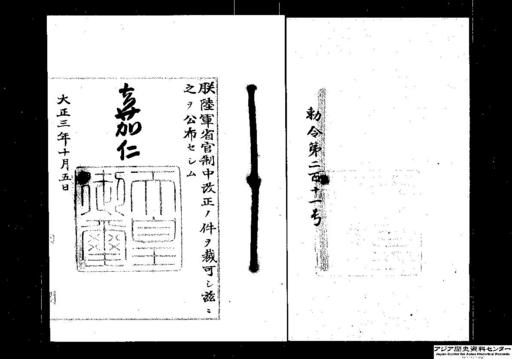 勅令第二百十一号
朕陸軍省官制中改正ノ件ヲ裁可シ茲ニ
之ヲ公布セシム
嘉仁
天皇
御璽
大正三年十月五日
アジア歴史資料センター
Japan Center for Asian Historical Records